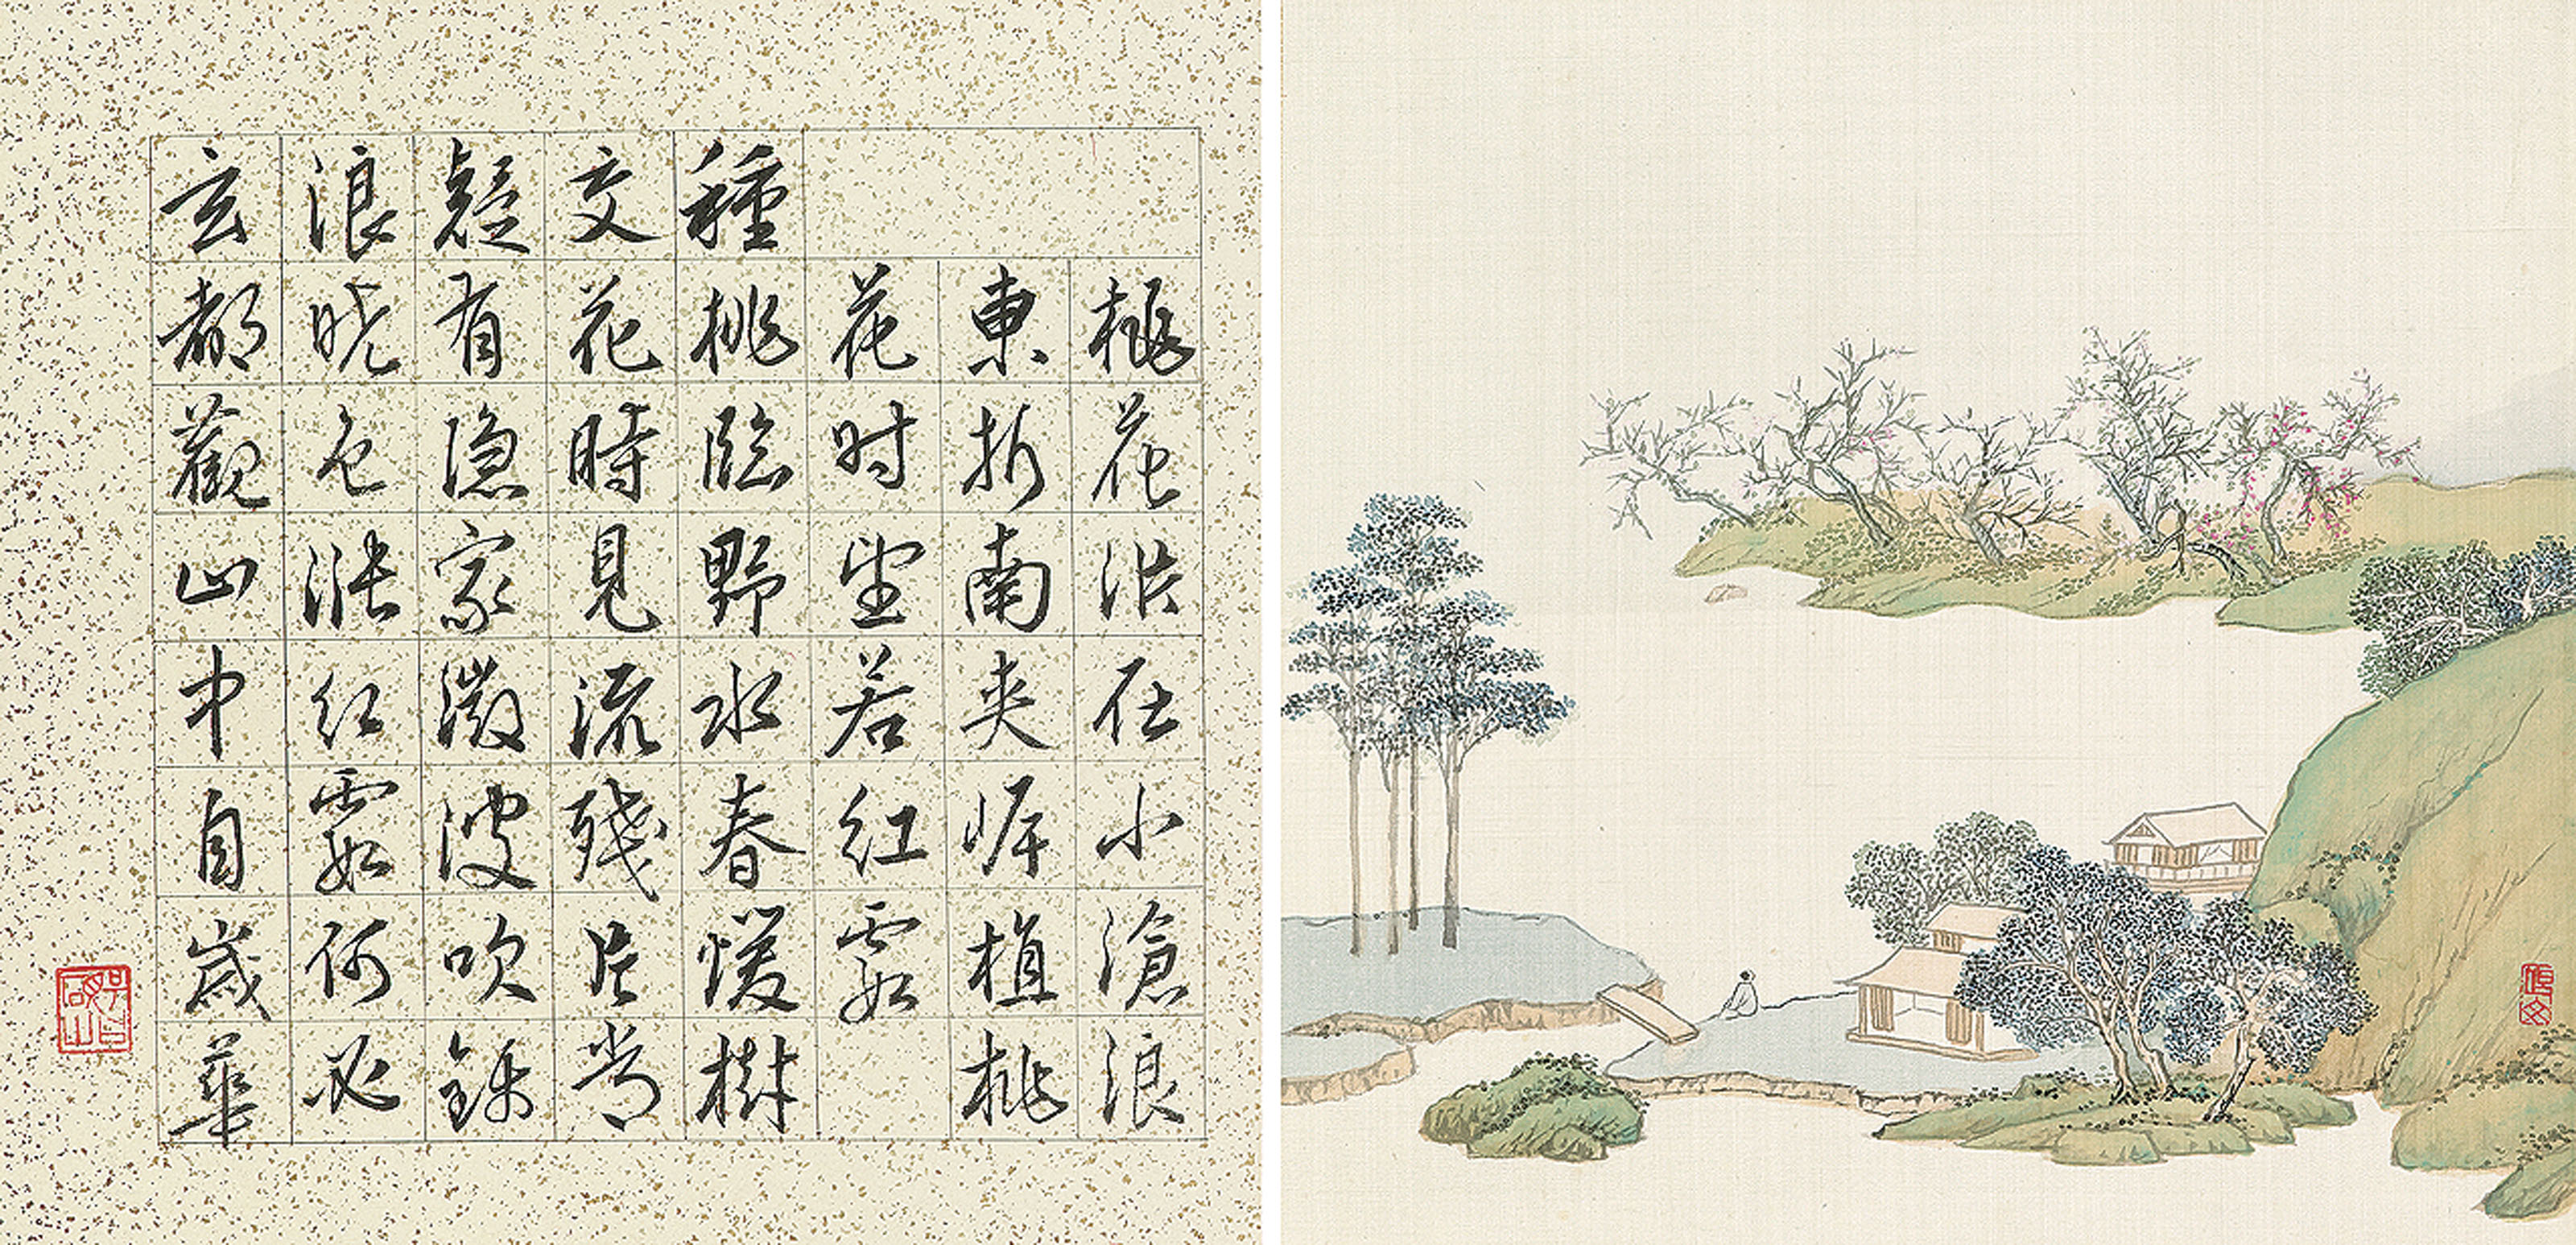 桃花沜在小滄浪
東折南夹岸植桃
花时望若紅霞
種桃臨野水春暖樹
交花時見流殘片常
疑有隐家微波吹錦
浪晓色漲紅霞何必
玄都觀山中自歲華